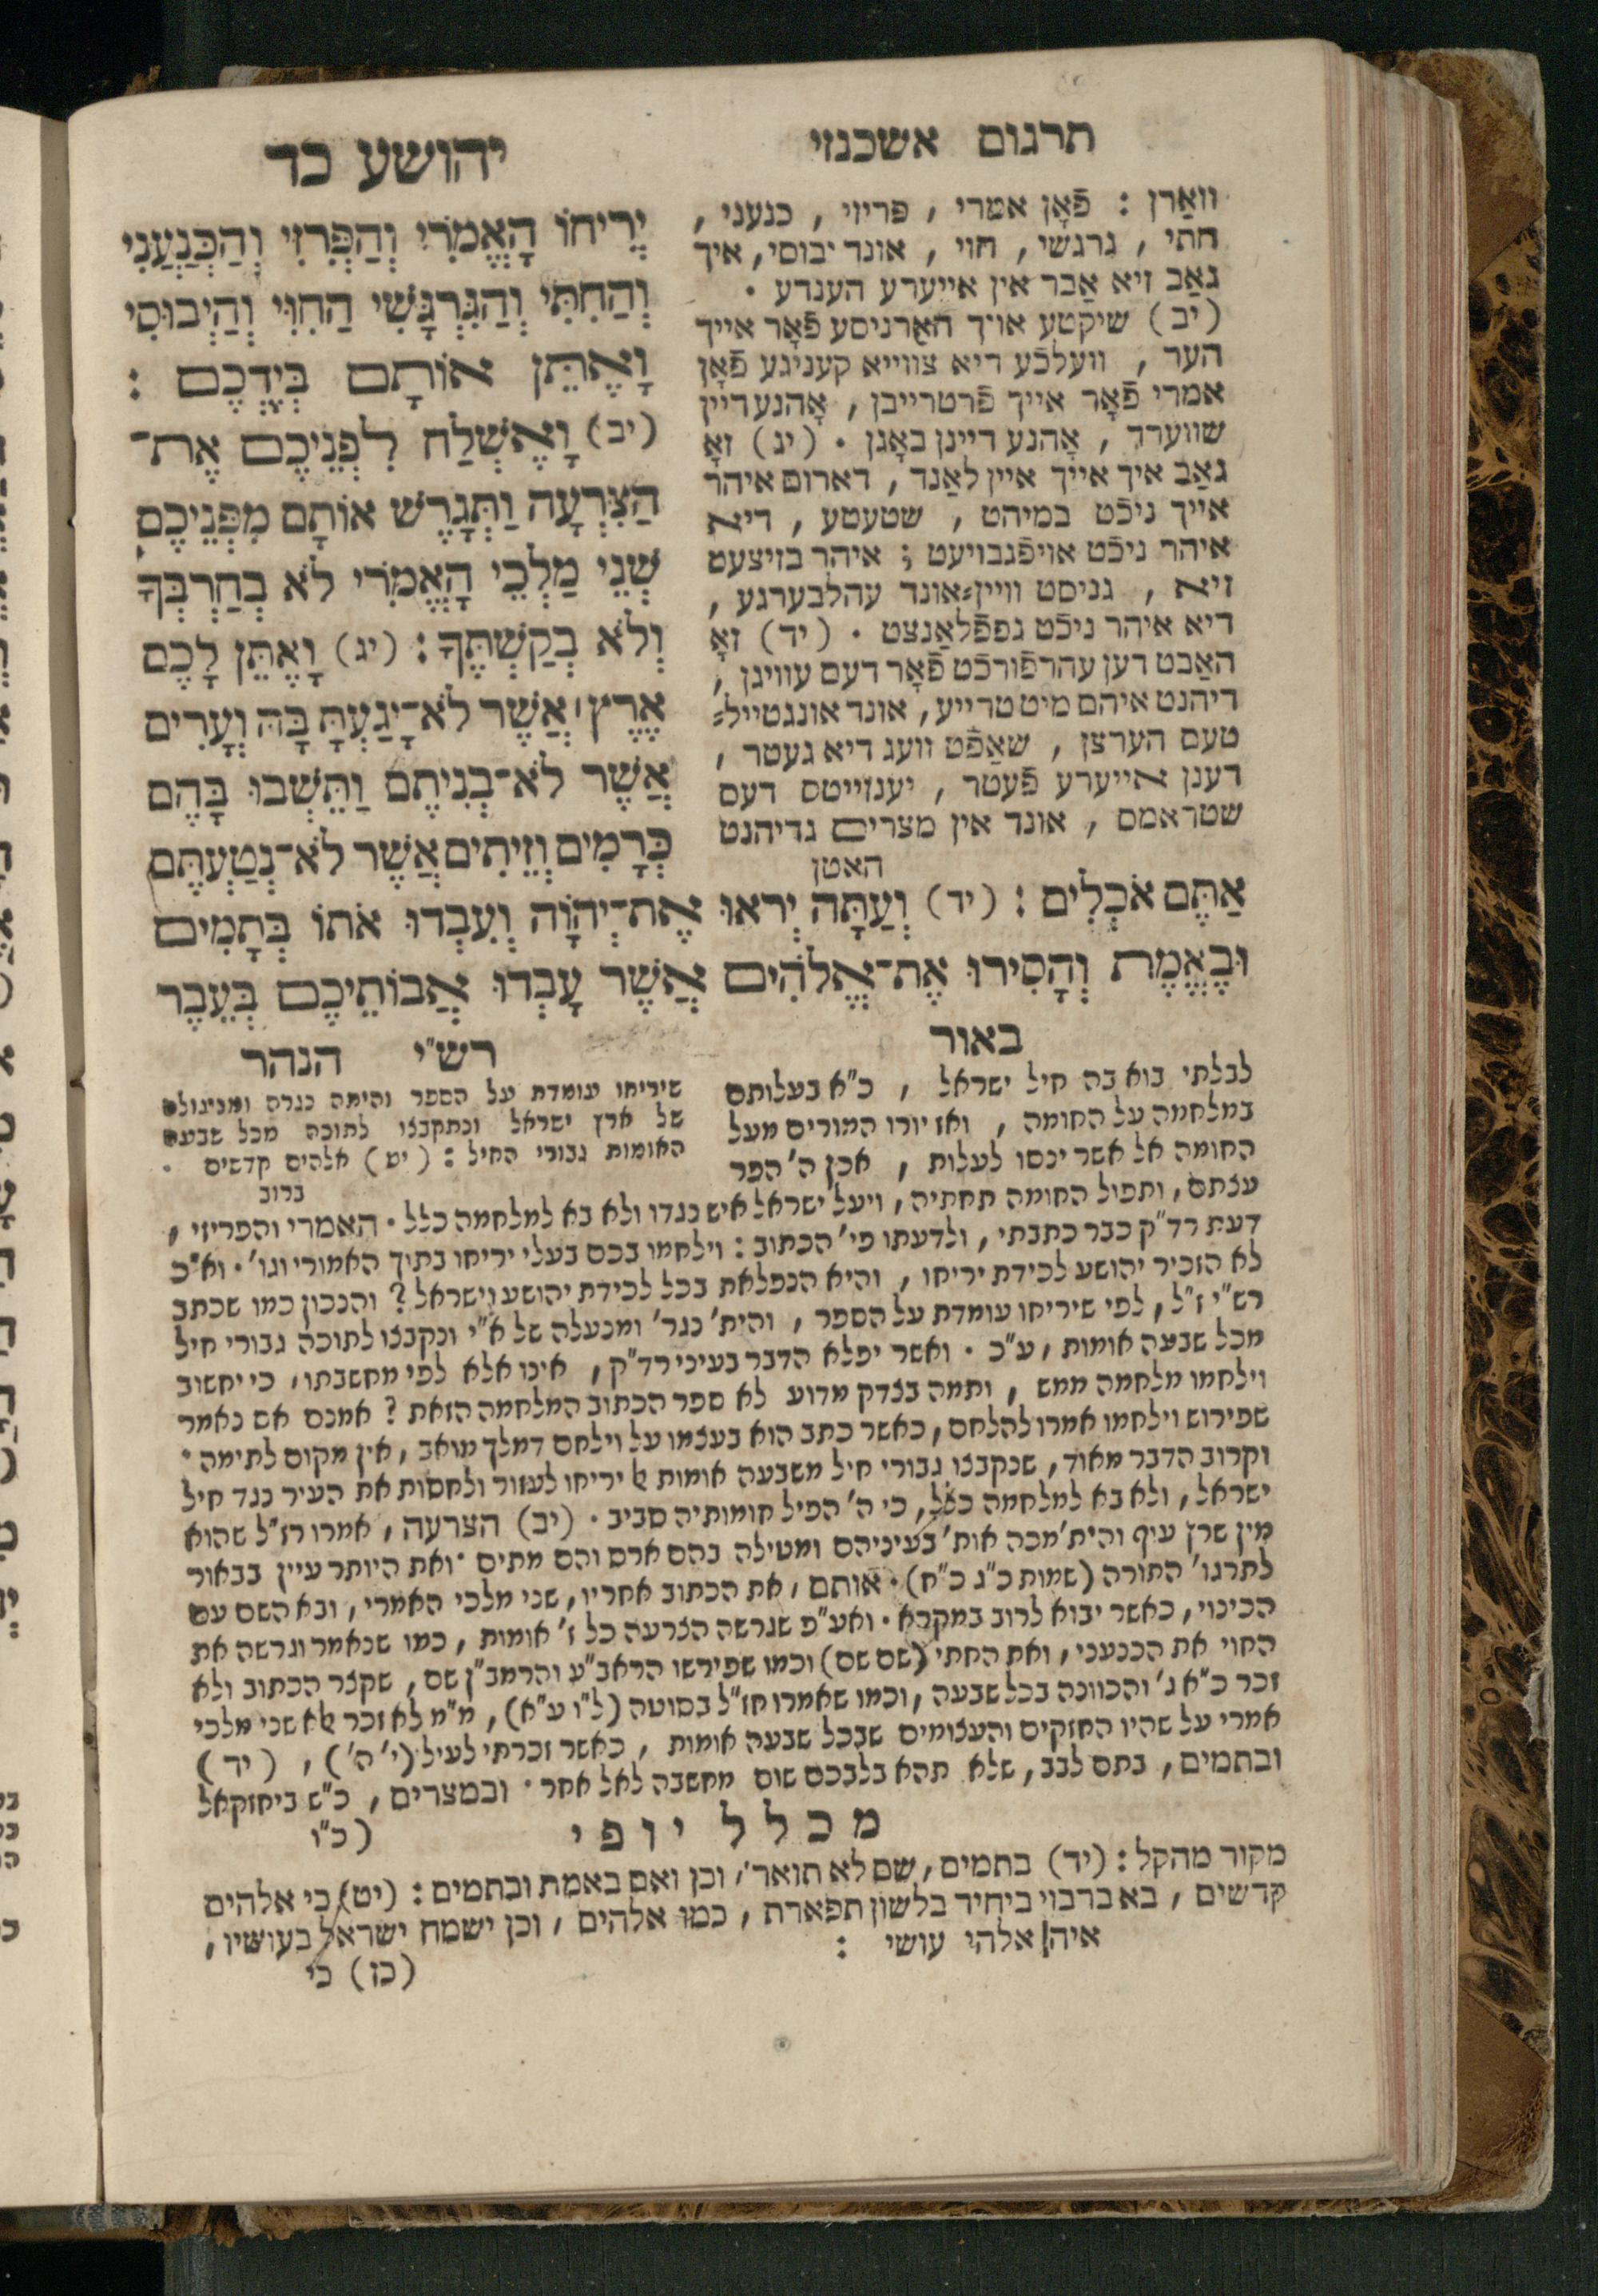 תרגום אשכנזי
יהושע כד
ווארן : פֿאָן אמרי , פריזי , כנעני ,
חתי , גרגשי , חוי , אונד יבוסי, איך
גאַב זיא אַבר אין אייערע הענדע .
(יב) שיקטע אויך האָרניסע פֿאָר אייך
הער , וועלכֿע דיא צווייא קעניגע פֿאָן
אמרי פֿאָר אייך פֿרטרייבן , אָהנע דיין
שווערד , אָהנע דיינן באָגן . (יג) זאָ
גאַב איך אייך איין לאַנד , דארום איהר
אייך ניכֿט במיהט , שטעטע , דיא
איהר ניכֿט אויפֿגבויעט ; איהר בזיצעט
זיא , גניסט וויין⸗אונד עהלבערגע ,
דיא איהר ניכֿט גפפֿלאַנצט . (יד) זאָ
האַבט דען עהרפֿורכֿט פֿאָר דעם עוויגן ,
דיהנט איהם מיט טרייע, אונד אונגטייל⸗
טעם הערצן , שאַפֿט וועג דיא געטר ,
דענן אייערע פֿעטר , יענזייטס דעס
שטראמס , אונד אין מצרים גדיהנט
האטן
יְרִיחוֹ הָאֱמֹרִי וְהַפְּרִזִּי וְהַכְּנַעֲנִי
וְהַחִתִּי וְהַגִּרְגָּשִׁי הַחִוִּי וְהַיְבוּסִי
וָאֶתֵּן אוֹתָם בְּיֶדְכֶם :
(יב) וָאֶשְׁלַח לִפְנֵיכֶם אֶת־
הַצִּרְעָה וַתְּגָרֶשׁ אוֹתָם מִפְּנֵיכֶם
שְׁנֵי מַלְכֵי הָאֱמֹרִי לֹא בְחַרְבְּךָ
וְלֹא בְקַשְׁתֶּךָ : (יג) וָאֶתֵּן לָכֶם
אֶרֶץ ׀ אֲשֶׁר לֹא־יָגַעְתָּ בָּהּ וְעָרִים
אֲשֶׁר לֹא־בְנִיתֶם וַתֵּשְׁבוּ בָּהֶם
כְּרָמִים וְזֵיתִים אֲשֶׁר לֹא־נְטַעְתֶּם
אַתֶּם אֹכְלִים : (יד) וְעַתָּה יְראוּ אֶת־יְהוָֹה וְעִבְדוּ אֹתוֹ בְּתָמִים
וּבֶאֱמֶת וְהָסִירוּ אֶת־אֱלֹהִים אֲשֶׁר עָבְדוּ אֲבוֹתֵיכֶם בְּעֵבֶר
באור
לבלתי בוא בה חיל ישראל , כ"א בעלותם
במלחמה על החומה , ואז יורו המורים מעל
החומה אל אשר ינסו לעלות , אכן ה' הפר
רש"י הנהר
שיריחו עומדת על הספר והיתה כנרה ומנעולה
של ארץ ישראל ונתקבצו לתוכה מכל שבעה
האומות גבורי החיל : (יט) אלהים קדשים .
ברוב
עצתם, ותפול החומה תחתיה, ויעל ישראל איש נגדו ולא בא למלחמה כלל. האמרי והפריזי,
דעת רד"ק כבר כתבתי, ולדעתו פי' הכתוב : וילחמו בכם בעלי יריחו בתוך האמורי וגו'. וא"כ
לא הזכיר יהושע לכידת יריחו, והיא הנפלאת בכל לכידת יהושע וישראל ? והנכון כמו שכתב
רש"י ז"ל, לפי שיריחו עומדת על הספר , והית' כנר' ומנעלה של א"י ונקבצו לתוכה גבורי חיל
מכל שבעה אומות, ע"כ . ואשר יפלא הדבר בעיני רד"ק, אינו אלא לפי מחשבתו, כי יחשוב
וילחמו מלחמה ממש , ותמה בצדק מדוע לא ספר הכתוב המלחמה הזאת ? אמנם אם נאמר
שפירוש וילחמו אמרו להלחם, כאשר כתב הוא בעצמו על וילחם דמלך מואב, אין מקום לתימה .
וקרוב הדבר מאוד, שנקבצו גבורי חיל משבעה אומות אל יריחו לעזור ולחסות את העיר נגד חיל
ישראל, ולא בא למלחמה כלל, כי ה' הפיל חומותיה סביב . (יב) הצרעה, אמרו רז"ל שהוא
מין שרץ עוף והית' מכה אות' בעיניהם ומטילה בהם ארס והם מתים . ואת היותר עיין בבאור
לתרגו' התורה (שמות כ"ג כ"ח) . אותם, את הכתוב אחריו, שני מלכי האמרי, ובא השם עם
הכינוי, כאשר יבוא לרוב במקרא . ואע"פ שגרשה הצרעה כל ז' אומות, כמו שנאמר וגרשה את
החוי את הכנעני, ואת החתי (שם שם) וכמו שפירשו הראב"ע והרמב"ן שם, שקצר הכתוב ולא
זכר כ"א ג' והכוונה בכל שבעה, וכמו שאמרו חז"ל בסוטה (ל"ו ע"א), מ"מ לא זכר אלא שני מלכי
אמרי על שהיו החזקים והעצומים שבכל שבעה אומות , כאשר זכרתי לעיל (י' ה') , (יד)
ובתמים, בתם לבב, שלא תהא בלבכם שום מחשבה לאל אחר . ובמצרים, כ"ש ביחזקאל
(כ"ו
מכלל יופי
מקור מהקל : (יד) בתמים, שם לא תואר', וכן ואם באמת ובתמים : (יט) כי אלהים
קדשים , בא ברבוי ביחיד בלשון תפארת , כמו אלהים , וכן ישמח ישראל בעושיו ,
איה אלהי עושי :
(כז) כי